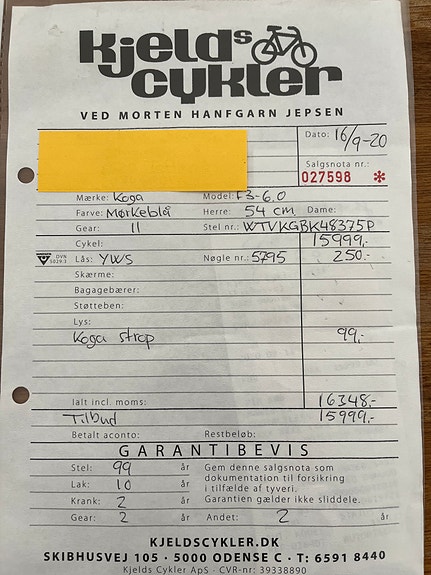 kjelds
cykler
VED MORTEN HANFGARN JEPSEN
Dato: 16/9-20
Salgsnota nr.:
027598 *
Mærke: Koga Model: F3-6.0
Farve: Mørkeblå Herre: 54 cm Dame:
Gear: 11 Stel nr.: WTVKGBK48375P
Cykel: 15999,-
DVN 5029:3 Lås: YWS Nøgle nr.: 5795 250.-
Skærme:
Bagagebærer:
Støtteben:
Lys:
Koga strop 99,-
Ialt incl. moms: 16348,-
Tilbud 15999.-
Betalt aconto: Restbeløb:
GARANTIBEVIS
Stel: 99 år Gem denne salgsnota som
dokumentation til forsikring
Lak: 10 år i tilfælde af tyveri.
Krank: 2 år Garantien gælder ikke sliddele.
Gear: 2 år Andet: 2 år
KJELDSCYKLER.DK
SKIBHUSVEJ 105 · 5000 ODENSE C · T: 6591 8440
Kjelds Cykler ApS · CVR-nr: 39338890